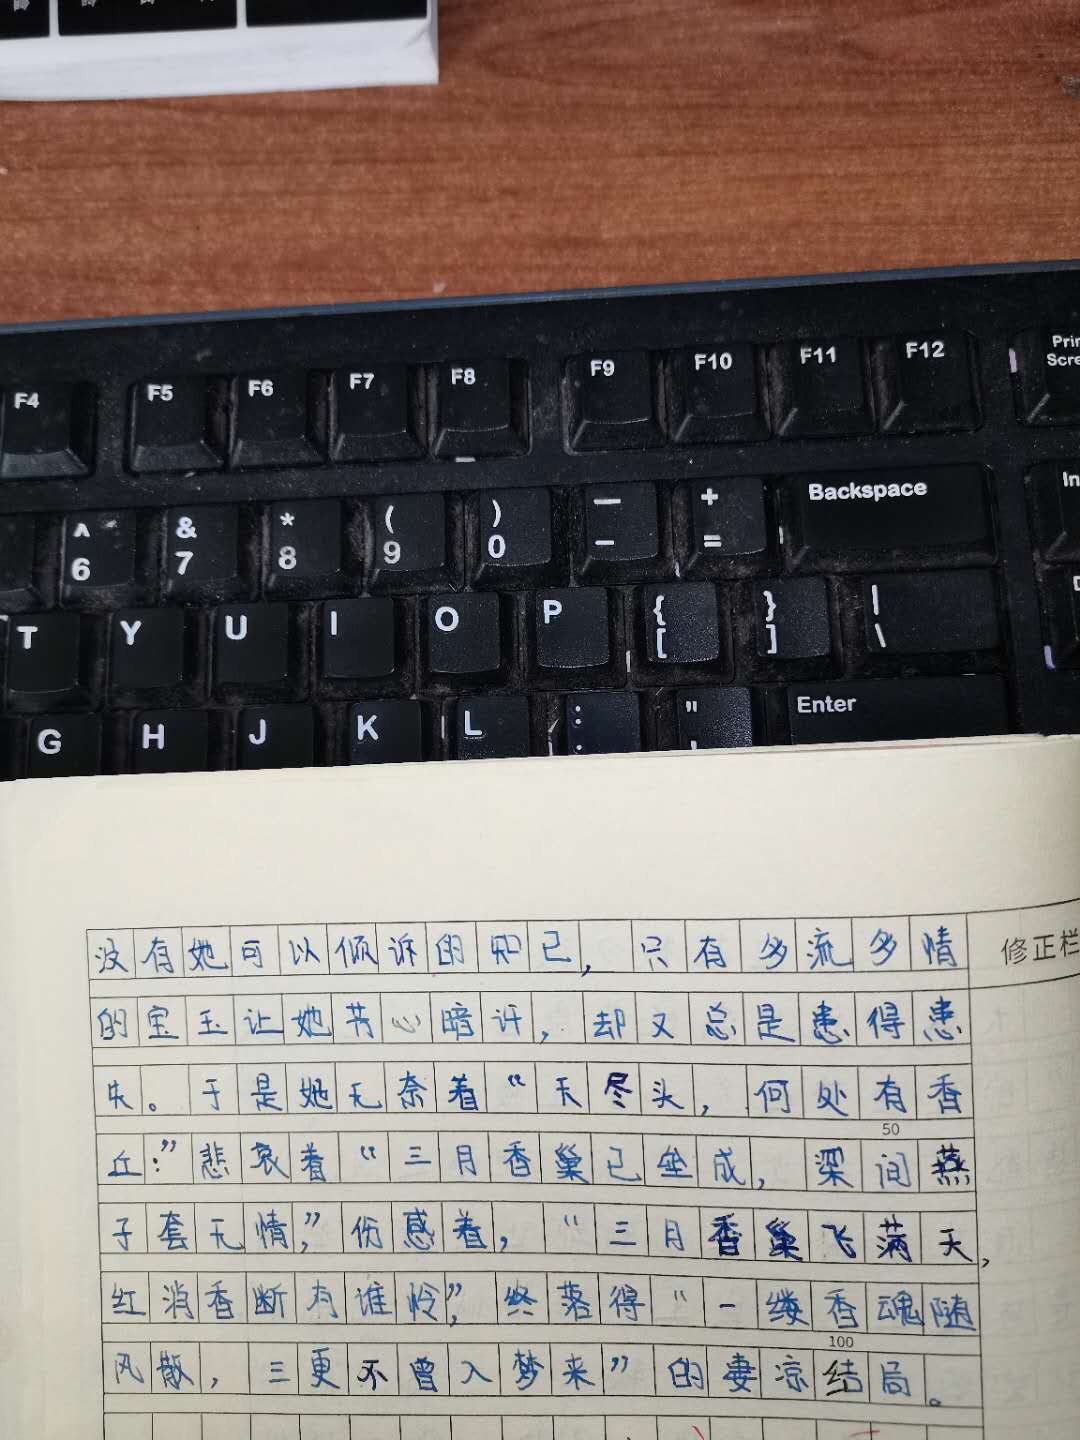 F4 F5 F6 F7 F8 F9 F10 F11 F12
^ & * ( ) — + Backspace
6 7 8 9 0 - =
T Y U I O P { } |
[ ] \
G H J K L : " Enter
没有她可以倾诉的知己,只有多流多情
修正栏
的宝玉让她芳心暗许,却又总是患得患
失。于是她无奈着“天尽头,何处有香
50
丘:”悲哀着“三月香巢已垒成,深间燕
子套无情,”伤感着,“三月香巢飞满天,
红消香断有谁怜”,终落得“一缕香魂随
100
风散,三更不曾入梦来”的妻凉结局。